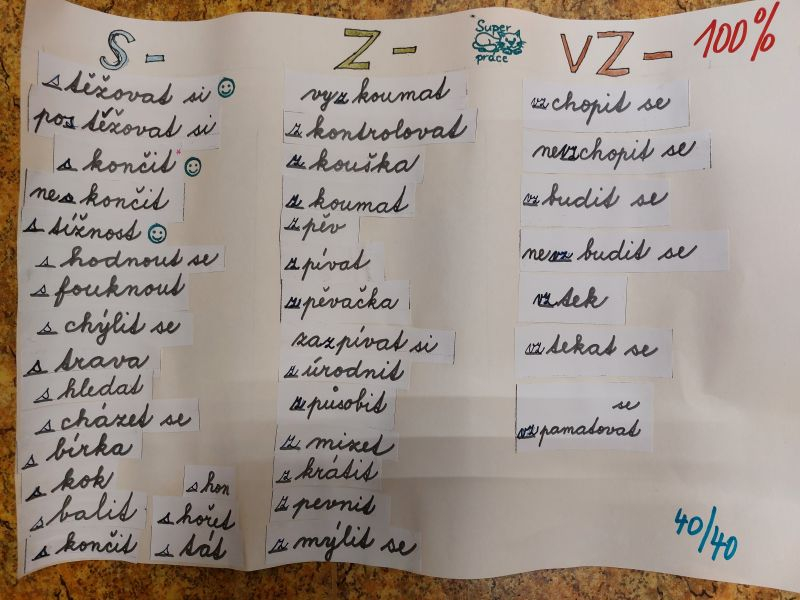 S -
stěžovat si
postěžovat si
skončit
neskončit
stížnost
shodnout se
sfouknout
schýlit se
strava
shledat
scházet se
sbírka
skok
sbalit
skončit
shon
shořet
stát
Z -
vyzkoumat
zkontrolovat
zkouška
zkoumat
zpěv
zpívat
zpěvačka
zazpívat si
zúrodnit
způsobit
zmizet
zkrátit
zpevnit
zmýlit se
Super
práce
VZ -
vzchopit se
nevzchopit se
vzbudit se
nevzbudit se
vztek
vztekat se
se
vzpamatovat
100%
40/40